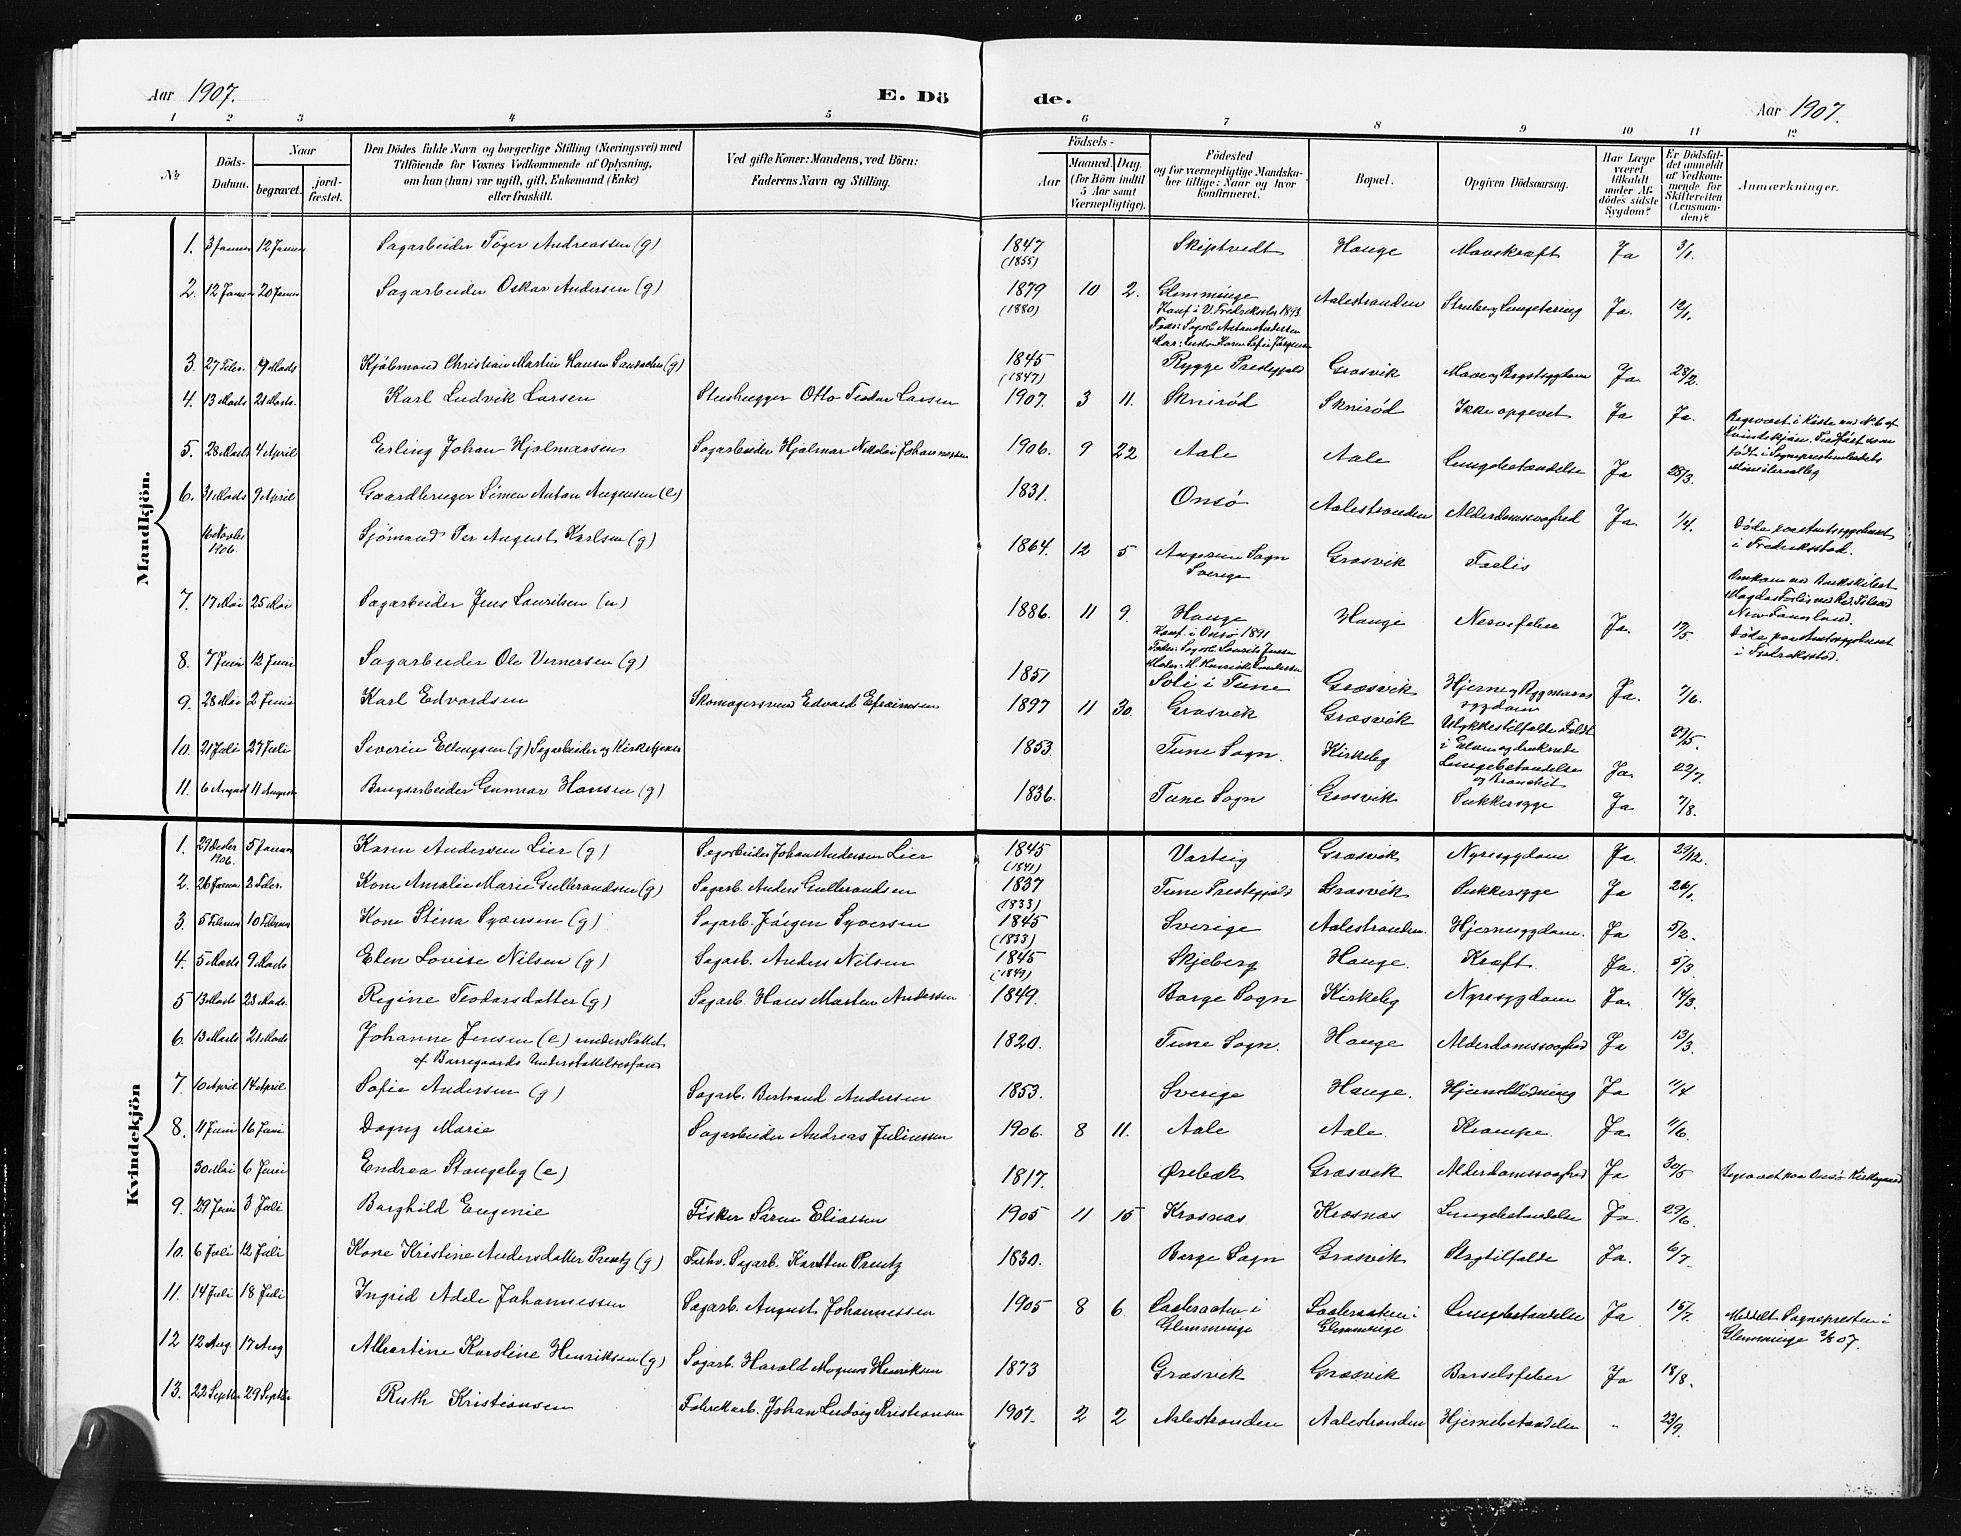 Aar 1907. E. Dö de. Aar 1907.
1 2 3 4 5 6 7 8 9 10 11 12
No
Döds-Datum.
Naar
begravet.
jord-fæstet.
Den Dödes fulde Navn og borgerlige Stilling (Næringsvei) med
Tilföiende for Voxnes Vedkommende af Oplysning,
om han (hun) var ugift, gift, Enkemand (Enke)
eller fraskilt.
Ved gifte Koner: Mandens, ved Börn:
Faderens Navn og Stilling.
Födsels-
Aar
Maaned. Dag.
(for Börn indtil
5 Aar samt
Værnepligtige).
Födested
og for værnepligtige Mandska-
ber tillige: Naar og hvor
konfirmeret.
Bopæl.
Opgiven Dödsaarsag.
Har Læge
været
tilkaldt
under Af-
dödes sidste
Sygdom?
Er Dödsfal-
det anmeldt
af Vedkom-
mende for
Skifteretten
(Lensman-
den)?
Anmærkninger.
Mandkjön.
1. 3 Januar 12 Januar Sagarbeider Töger Andreassen (g) 1847 (1855) Skiptvedt Hauge Mavekræft Ja 3/1.
2. 12 Januar 20 Januar Sagarbeider Oskar Andersen (g) 1879 (1880) 10 2. Glemminge Aalestranden Strube og Lungetæring Ja. 12/1.
Konf i V. Fredrikstad 1893
Fader: Sagarb. Anton Andersen
3. 27 Febr. 9 Marts Kjöbmand Christian Martin Hansen (g) 1845 (1847) Rygge Prestegjæld Græsvik Mave og Brystsygdom Ja 28/2.
4. 13 Marts 21 Marts. Karl Ludvik Larsen Stenhugger Otto Teodor Larsen 1907. 3 11. Sknirød Sknirød Ikke opgevet Ja Ja. Begravet i Kiste med N. 6 af
Kvindekjøn. Tilført som
født i Sogneprestembedets
Ministerialbog
5. 28 Marts 4 April Erling Johan Hjalmarsen Sagarbeider Hjalmar Nikolai Johannessen 1906. 9 22 Aale Aale Lungebetændelse Ja 28/3.
6. 31 Marts 9 April Gaardbruger Simen Anton Augensen (e) 1831. Onsø Aalestranden Alderdomssvaghed Ja. 1/4.
16 Novbr 1906. Sjömand Per August Karlsen (g) 1864. 12 5 Sogn Sverige Græsvik Forlis
Døde paa Amtssygehuset
i Fredriksstad.
Omkom ved
7. 17 Mai 25 Mai Sagarbeider Jens Lauritsen (u) 1886. 11 9. Hauge Hauge Nervefeber Ja. 17/5
Konf. i Onsø 1891
Fader: Sagarb. Laurits Jensen
Døde paa Amtssygehuset
i Fredriksstad.
8. 7 Juni 12 Juni Sagarbeider Ole Vernersen (g) 1851 Soli i Tune Græsvik Hjerne og Rygmarvs
sygdom Ja. 7/6.
9. 28 Mai 2 Juni Karl Edvardsen Skomagersvend Edvard Efraimsen 1897 11 30. Græsvik Græsvik Ulykkestilfælde Faldt
i Elven og druknede 29/5.
10. 21 Juli 27 Juli Severin Ellingsen (g) Sagarbeider og Kirketjener 1853. Tune Sogn. Kirkeby Lungebetændelse
og Bronchit Ja. 22/7.
11. 6 August 11 August Brugsarbeider Gunnar Hansen (g) 1836. Tune Sogn Græsvik Sukkersyge Ja 7/8.
Kvindekjön
1. 29 Decbr 1906. 5 Januar Karen Andersen Lier (g) Sagarbeider Johan Andersen Lier 1845 (1841) Varteig Græsvik Nyresygdom Ja. 29/12.
2. 26 Januar 2 Febr. Kone Amalie Marie Gulbrandsen (g) Sagarb. Anders Gulbrandsen 1837 (1833) Tune Prestegjæld Græsvik Sukkersyge Ja 26/1.
3. 5 Februar 10 Februar Kone Stina Syversen (g) Sagarb. Jörgen Syversen 1845 (1833) Sverige Aalestranden. Hjernesygdom. Ja 5/2.
4. 5 Marts 9 Marts Elen Lovise Nilsen (g) Sagarb. Anders Nilsen 1845 (1849) Skjeberg Hauge. Kræft. Ja. 5/3
5 13 Marts 23 Marts. Regine Teodorsdatter (g) Sagarb. Hans Morten Andersen 1849. Borge Sogn Kirkeby Nyresygdom Ja. 14/3.
6. 13 Marts 21 Marts Johanne Jensen (e) understøttet
af Borregaards Understøttelsesfond 1820. Tune Sogn. Hauge Alderdomssvaghed Ja 13/3.
7. 10 April 14 April Sofie Andersen (g) Sagarb. Bertrand Andersen 1853. Sverige Hauge. Hjerneblødning Ja 11/4
8. 11 Juni 16 Juni Dagny Marie Sagarbeider Andreas Juliussen 1906. 8 11. Aale Aale. Krampe. Ja. 11/6.
30 Mai 6 Juni Endrea Stangeby (e) 1817. Ørebæk Græsvik Alderdomssvaghed Ja 30/5 Begravet paa Onsø Kirkegaard
9. 29 Juni 3 Juli Borghild Eugenie Fisker Sören Eliassen 1905 11 15 Krosnæs Krosnæs Lungebetændelse Ja. 29/6.
10. 6 Juli 12 Juli Kone Kristine Andersdatter Prentz (g) Forhv. Sagarb. Karsten Prentz 1830. Borge Sogn Græsvik Slagtilfælde Ja. 6/7.
11. 14 Juli 18 Juli Ingrid Adele Johannessen Sagarb. August Johannessen 1905 8 6. i
Glemminge i
Glemminge Lungebetændelse Ja 15/7. Meddelt Sognepresten i
Glemminge
12 12 Aug. 17 Aug Albertine Karoline Henriksen (g) Sagarb. Harald Magnus Henriksen 1873 Græsvik Græsvik Barselsfeber Ja 18/8.
13. 22 Septbr 29 Septbr Ruth Kristiansen Fabrekarb. Johan Ludvig Kristiansen 1907. 2 2 Aalestranden Aalestranden Hjernebetændelse " 23/9.